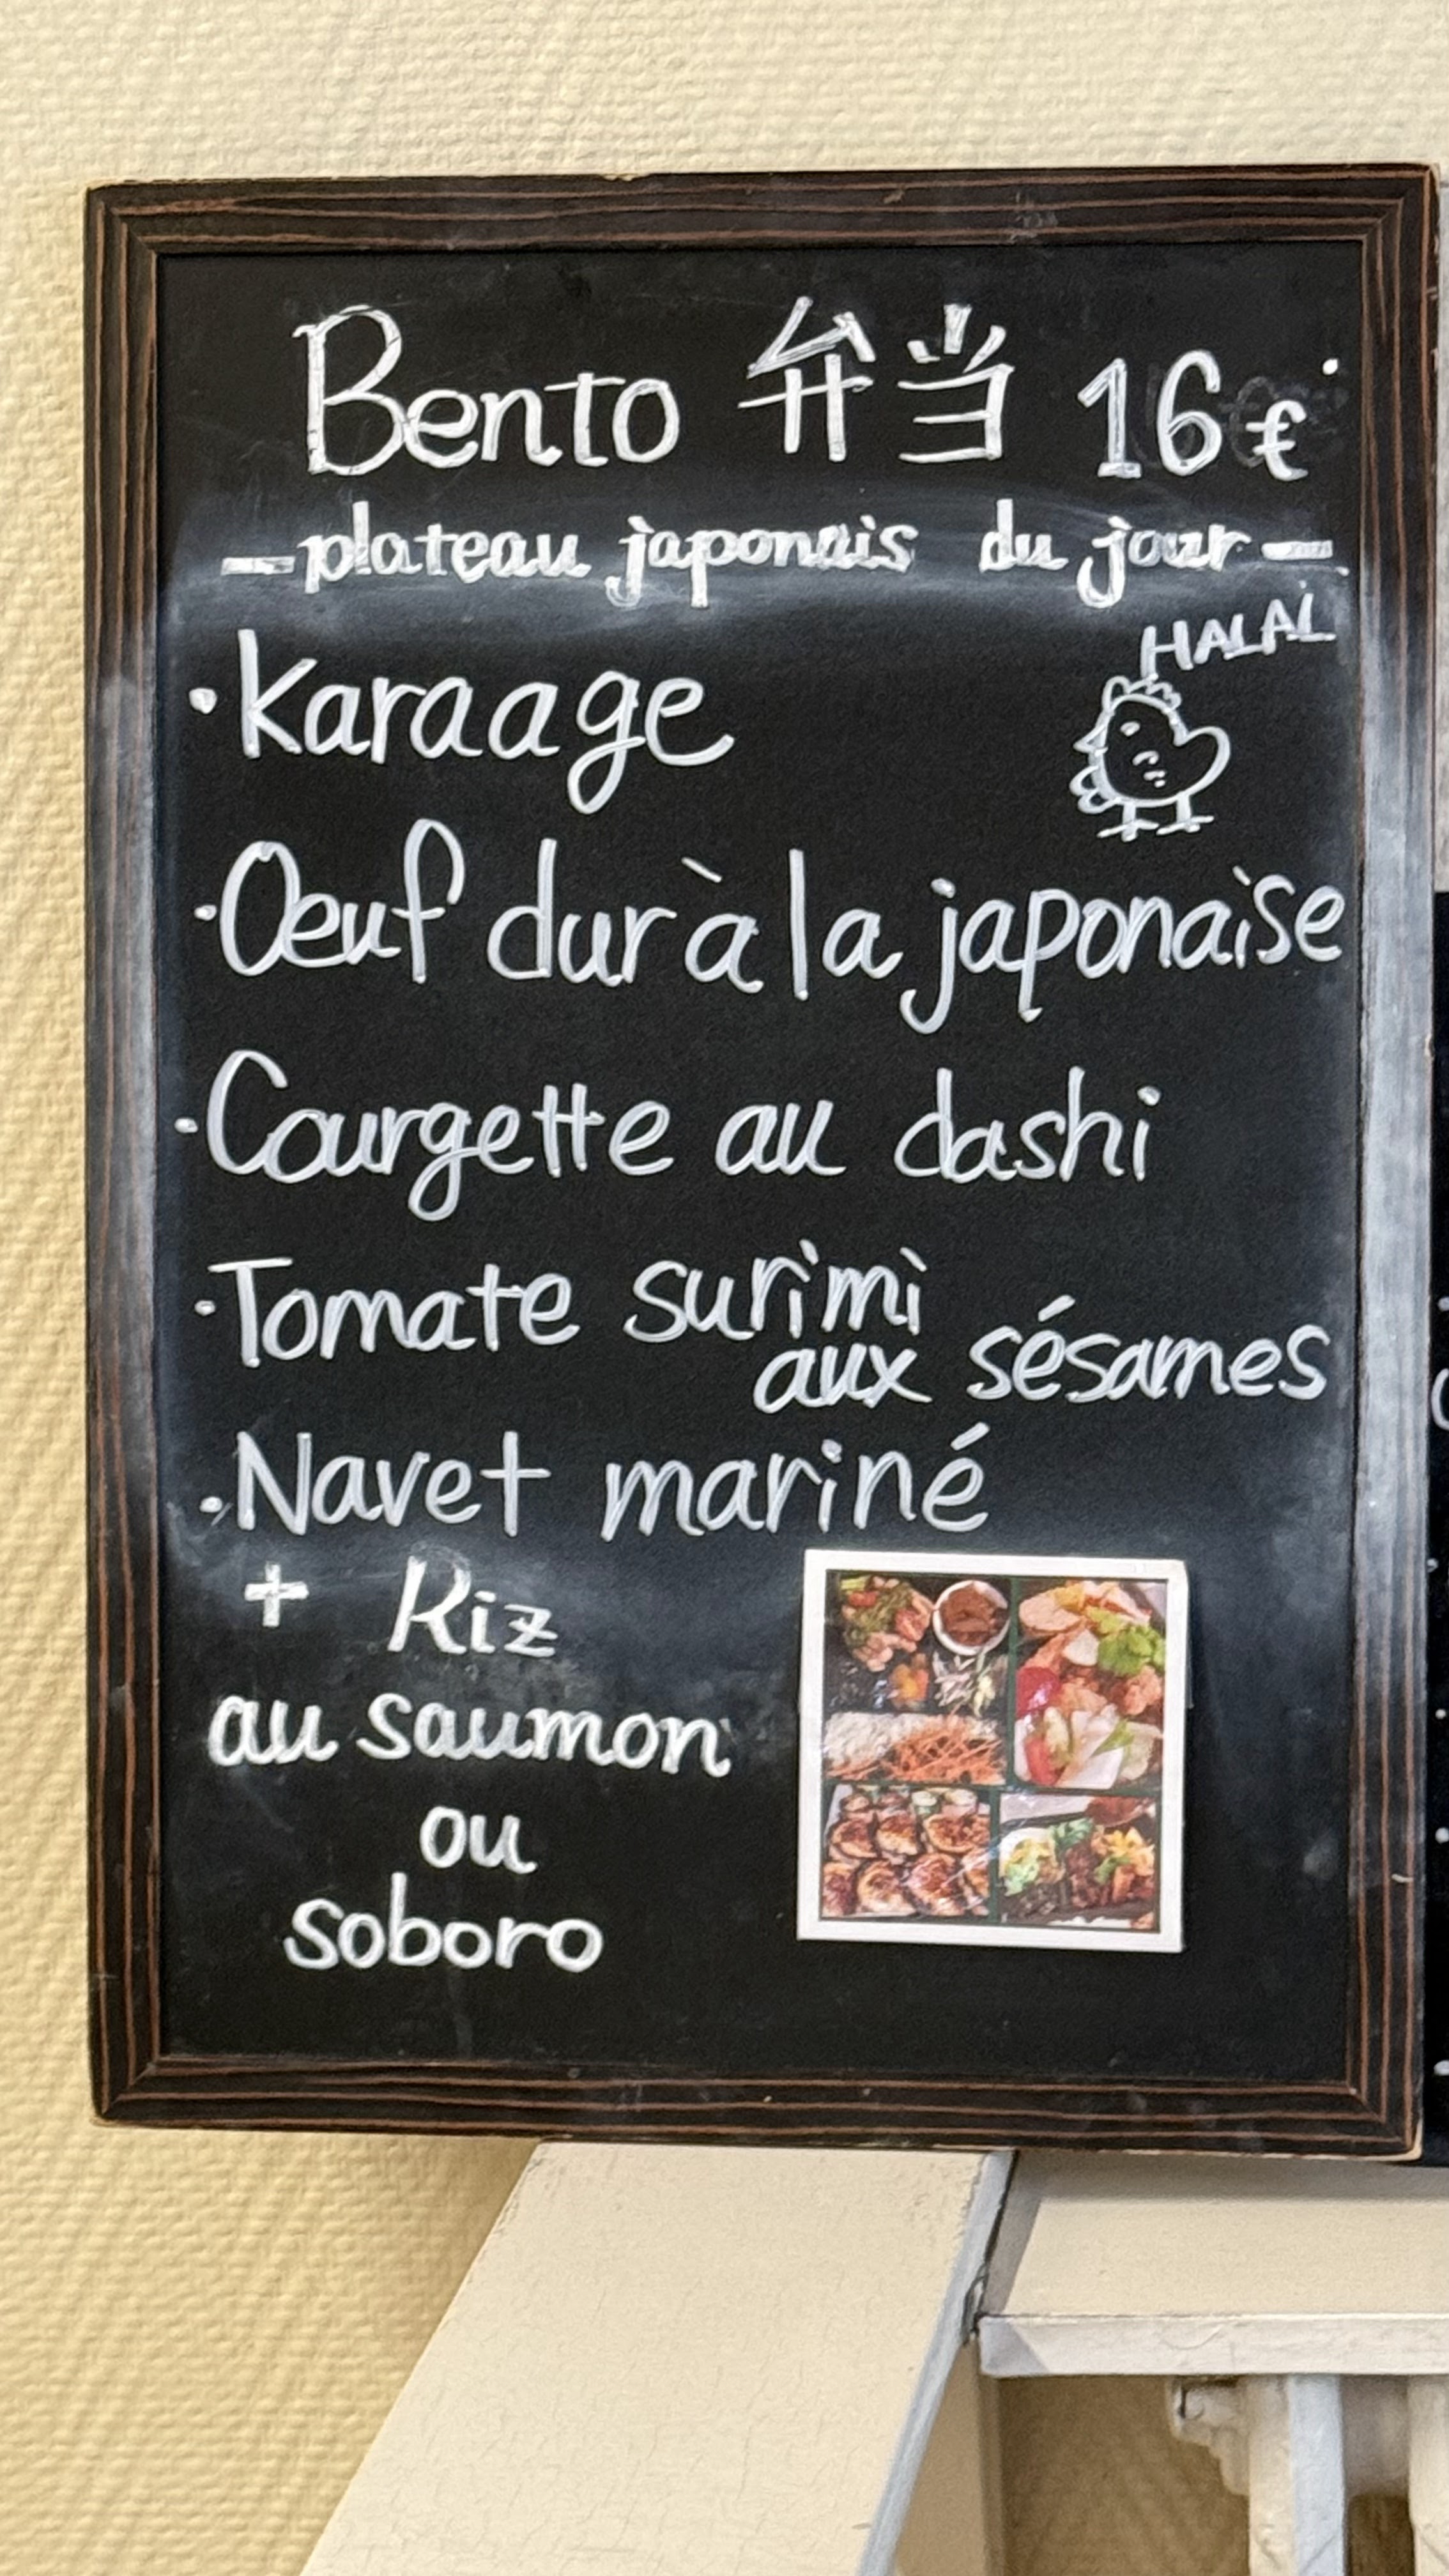 Bento 弁当 16€
— plateau japonais du jour —
HALAL
· Karaage
· Oeuf dur à la japonaise
· Courgette au dashi
· Tomate surimi
aux sésames
· Navet mariné
+ Riz
au saumon
ou
soboro